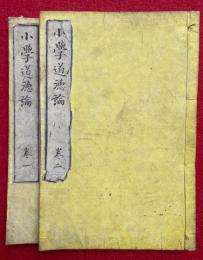 小學道德論 卷二
小學道德論 卷一